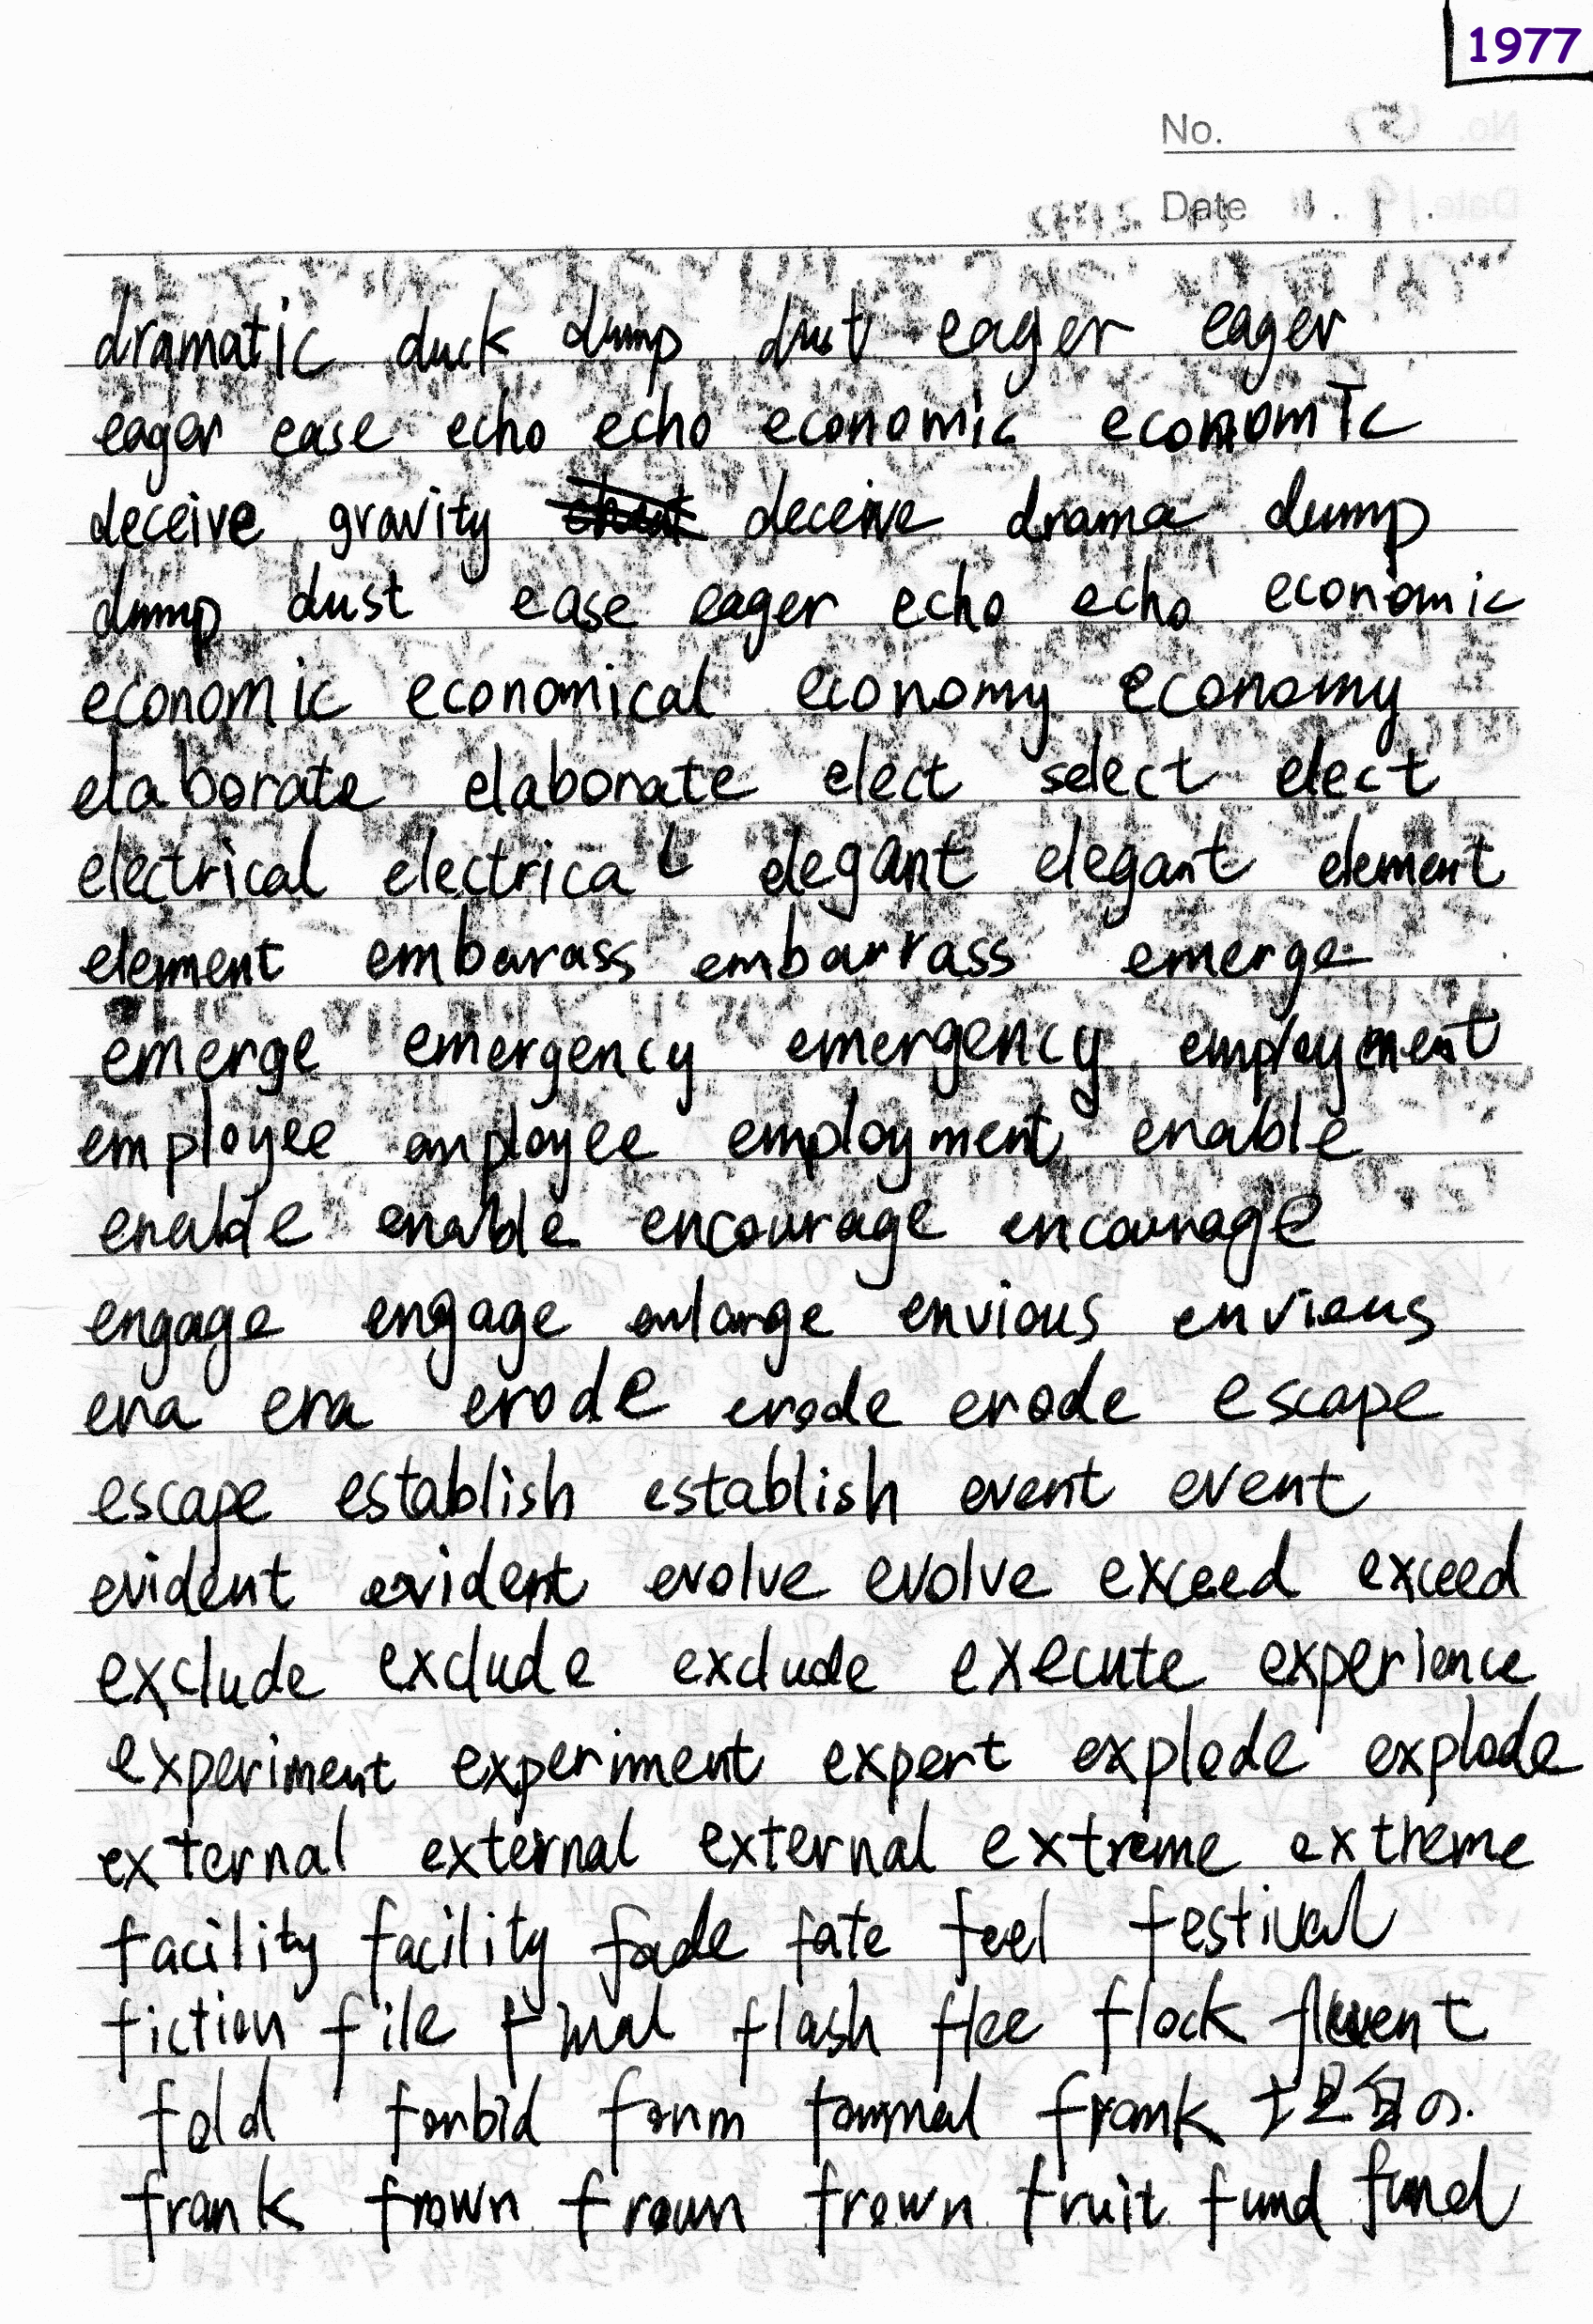 1977
No.
Date
dramatic duck dump dust eager eager
eager ease echo echo economic economic
deceive gravity deceive drama dump
dump dust ease eager echo echo economic
economic economical economy economy
elaborate elaborate elect select elect
electrical electrical elegant elegant element
element embarass embarrass emerge
emerge emergency emergency employment
employee employee employment enable
enable enable encourage encourage
engage engage enlarge envious envious
era era erode erode erode escape
escape establish establish event event
evident evident evolve evolve exceed exceed
exclude exclude exclude execute experience
experiment experiment expert explode explode
external external external extreme extreme
facility facility fade fate feel festival
fiction file final flash flee flock fluent
fold forbid form formal frank 坦白的.
frank frown frown frown fruit fund fund